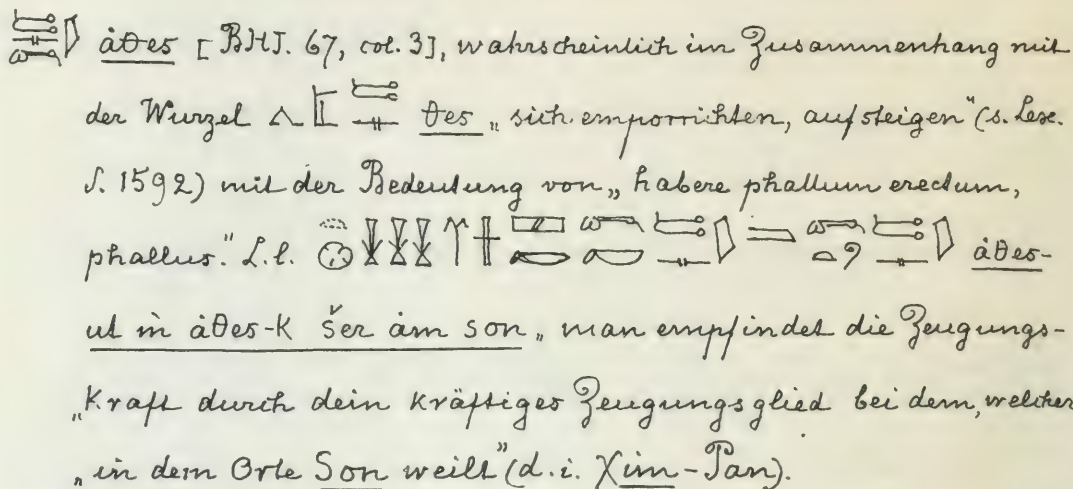 àθes [BHJ. 67, col. 3], wahrscheinlich im Zusammenhang mit
der Wurzel θes „sich emporrichten, aufsteigen" (s. Lex.
S. 1592) mit der Bedeutung von „habere phallum erectum,
phallus." L.l. àθes-
ut m àθes-K šer àm son „man empfindet die Zeugungs-
„Kraft durch dein kräftiges Zeugungsglied bei dem, welcher
„in dem Orte Son weilt" (d. i. Xim-Pan).